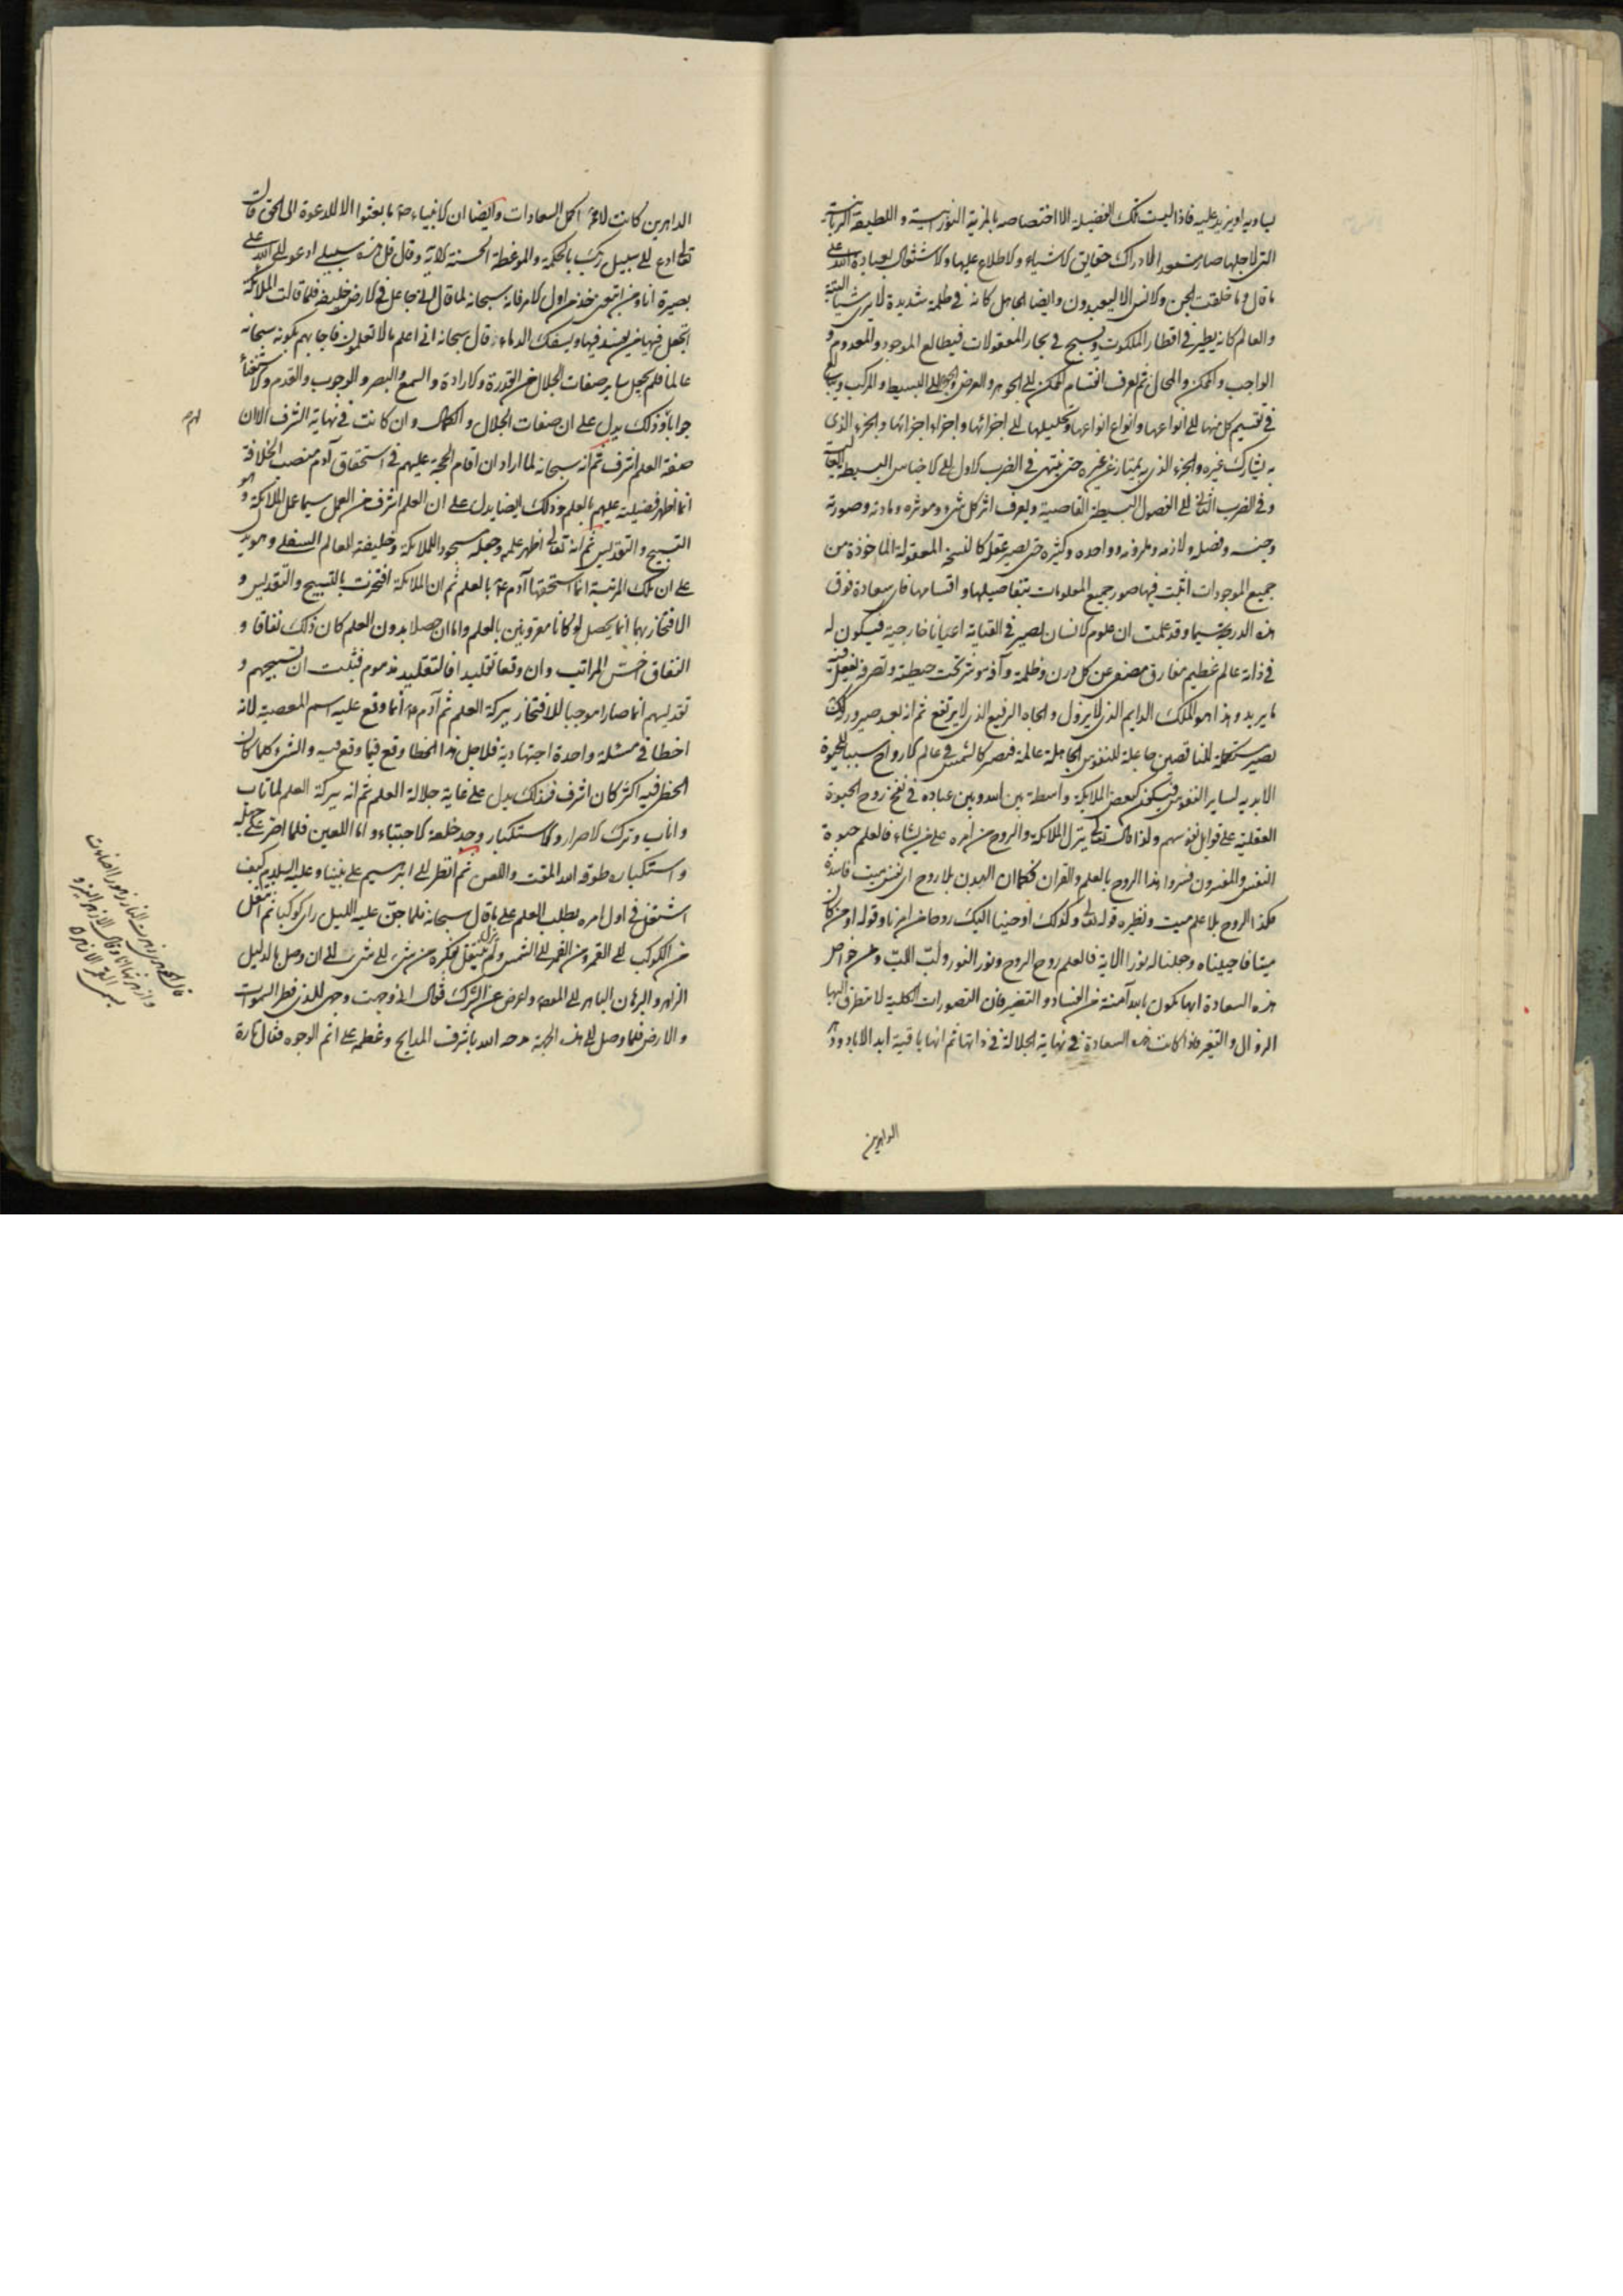 يساويه او يزيد عليه فاذا ليست تلك الفضيلة الا اختصاصه بالمزية النورانية و اللطيفة الربانية
التي لاجلها صار مستعدا لادراك حقايق الاشياء و الاطلاع عليها و الاشتغال بعبادة الله على
ما قال و ما خلقت الجن و الانس الا ليعبدون و ايضا الجاهل كانه في ظلمة شديدة لا يرى شيئا البتة
و العالم كانه يطير في اقطار الملكوت و يسبح في بحار المعقولات فيطالع الموجود و المعدوم و
الواجب و الممكن و المحال ثم يعرف انقسام الممكن الى الجوهر و العرض و الجوهر الى البسيط و المركب و يبالغ
في تقسيم كل منها الى انواعها و انواع انواعها و تحليلها الى اجزائها و اجزاء اجزائها و الجزء الذي
به يشارك غيره و الجزء الذي به يمتاز عن غيره حتى ينتهي في الضرب الاول الى الاجناس البسيطة العالية
و في الضرب الثاني الى الفصول البسيطة القاصية و يعرف اثر كل شيء و موثره و مادته و صورته
و جنسه و فصله و لازمه و ملزومه و واحده و كثيره حتى يصير عقله كالنسخة المعقولة الماخوذة من
جميع الموجودات اثبت فيها صور جميع المعلومات بتفاصيلها و اقسامها فاي سعادة فوق
هذه الدرجة سيما و قد علمت ان علوم الانسان يصير في القيامة اعيانا خارجية فيكون له
في ذاته عالم عظيم مفارق مصفى عن كل درن و ظلمة و آفة هو تحت حيطته و تصرفه يفعل فيه
ما يريد و هذا هو الملك الدايم الذي لا يزول و الجاه الرفيع الذي لا يرتفع ثم انه بعد صيرورته كذلك
يصير مستكملة للناقصين جاعلة للنفوس الجاهلة عالمة فتصير كالشمس في عالم الارواح سببا للحيوة
الابدية لساير النفوس فيكون كبعض الملايكة واسطة بين الله و بين عباده في نفخ روح الحيوة
العقلية على قوابل نفوسهم و لذا قال تعالى ينزل الملايكة و الروح من امره على من يشاء فالعلم حيوة
النفس و المفسرون فسروا هذا الروح بالعلم و القران فكما ان البدن بلا روح اي نفس ميت فاسد
هكذا الروح بلا علم ميت و نظيره قوله تعالى و كذلك اوحينا اليك روحا من امرنا و قوله او من كان
ميتا فاحييناه و جعلنا له نورا الاية فالعلم روح الروح و نور النور و لب اللب و من خواص
هذه السعادة انها تكون ابدا آمنة من الفساد و التغير فان التصورات الكلية لا يتطرق اليها
الزوال و التغير فاذا كانت هذه السعادة في نهاية الجلالة في ذاتها ثم انها باقية ابد الاباد و دهر
الداهرين
الداهرين كانت لا محة اكمل السعادات و ايضا ان الانبياء ص ما بعثوا الا للدعوة الى الحق قال
تعالى ادع الى سبيل ربك بالحكمة و الموعظة الحسنة الاية و قال قل هذه سبيلي ادعو الى الله على
بصيرة انا و من اتبعني خذ من اول الامر فانه سبحانه لما قال اني جاعل في الارض خليفة فلما قالت الملائكة
اتجعل فيها من يفسد فيها و يسفك الدماء قال سبحانه اني اعلم ما لا تعلمون فاجابهم بكونه سبحانه
عالما فلم يجعل ساير صفات الجلال من القدرة و الارادة و السمع و البصر و الوجوب و القدم و الاستغناء
جوابا و ذلك يدل على ان صفات الجلال و الكمال و ان كانت في نهاية الشرف الا ان
لهم
صفة العلم اشرف ثم انه سبحانه لما اراد ان اقام الحجة عليهم في استحقاق آدم منصب الخلافة
انما اظهر فضيلته عليهم بالعلم و ذلك ايضا يدل على ان العلم اشرف من العمل سيما عمل الملايكة و هو
التسبيح و التقديس ثم انه تعالى اظهر علمه و جعله مسجود الملايكة و خليفة العالم السفلي و هو يدل
على ان تلك المرتبة انما استحقها آدم ع بالعلم ثم ان الملايكة افتخرت بالتسبيح و التقديس و
الافتخار بهما انما يحصل لو كانا مقرونين بالعلم و اما ان حصلا بدون العلم كان ذلك نفاقا و
النفاق اخس المراتب و ان وقعا تقليدا فالتقليد مذموم فثبت ان تسبيحهم و
تقديسهم انما صارا موجبا للافتخار ببركة العلم ثم آدم ع انما وقع عليه اسم المعصية لانه
اخطا في مسئلة واحدة اجتهادية فلاجل هذا الخطا وقع فيما وقع فيه و الشيء كلما كان
الخطر فيه اكثر كان اشرف فذلك يدل على غاية جلالة العلم ثم انه ببركة العلم لما تاب
و اناب و ترك الاصرار و الاستكبار وجد خلعة الاجتباء و اما اللعين فلما اصر على جهله
و استكباره طوقه الله المقت و اللعن ثم انظر الى ابرهيم على نبينا و عليه السلام كيف
اشتغل في اول امره بطلب العلم على ما قال سبحانه فلما جن عليه الليل راى كوكبا ثم انتقل
من الكوكب الى القمر و من القمر الى الشمس و لم يزل ينتقل بفكره من شيء الى شيء الى ان وصل بالدليل
الزاهر و البرهان الباهر الى المقصود و اعرض عن الشرك فقال اني وجهت وجهي للذي فطر السموات
و الارض فلما وصل الى هذه الجهة مدحه الله باشرف المدايح و عظمه على اتم الوجوه فقال تارة
زهرت النار زهورا اضاءت
و ازهرتها انا و قال الازهر النير و
يسمى القمر الازهر